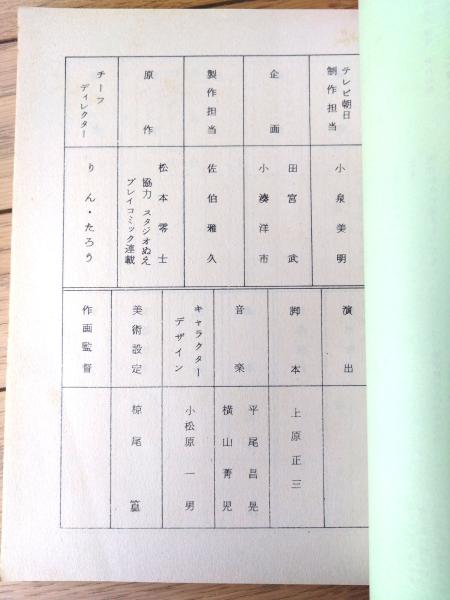 テレビ朝日
制作担当
小泉美明
企画
田宮武
小湊洋市
製作担当
佐伯雅久
原作
松本零士
協力 スタジオぬえ
プレイコミック連載
チーフ
ディレクター
りん・たろう
演出
脚本
上原正三
音楽
平尾昌晃
横山菁児
キャラクター
デザイン
小松原一男
美術設定
椋尾篁
作画監督